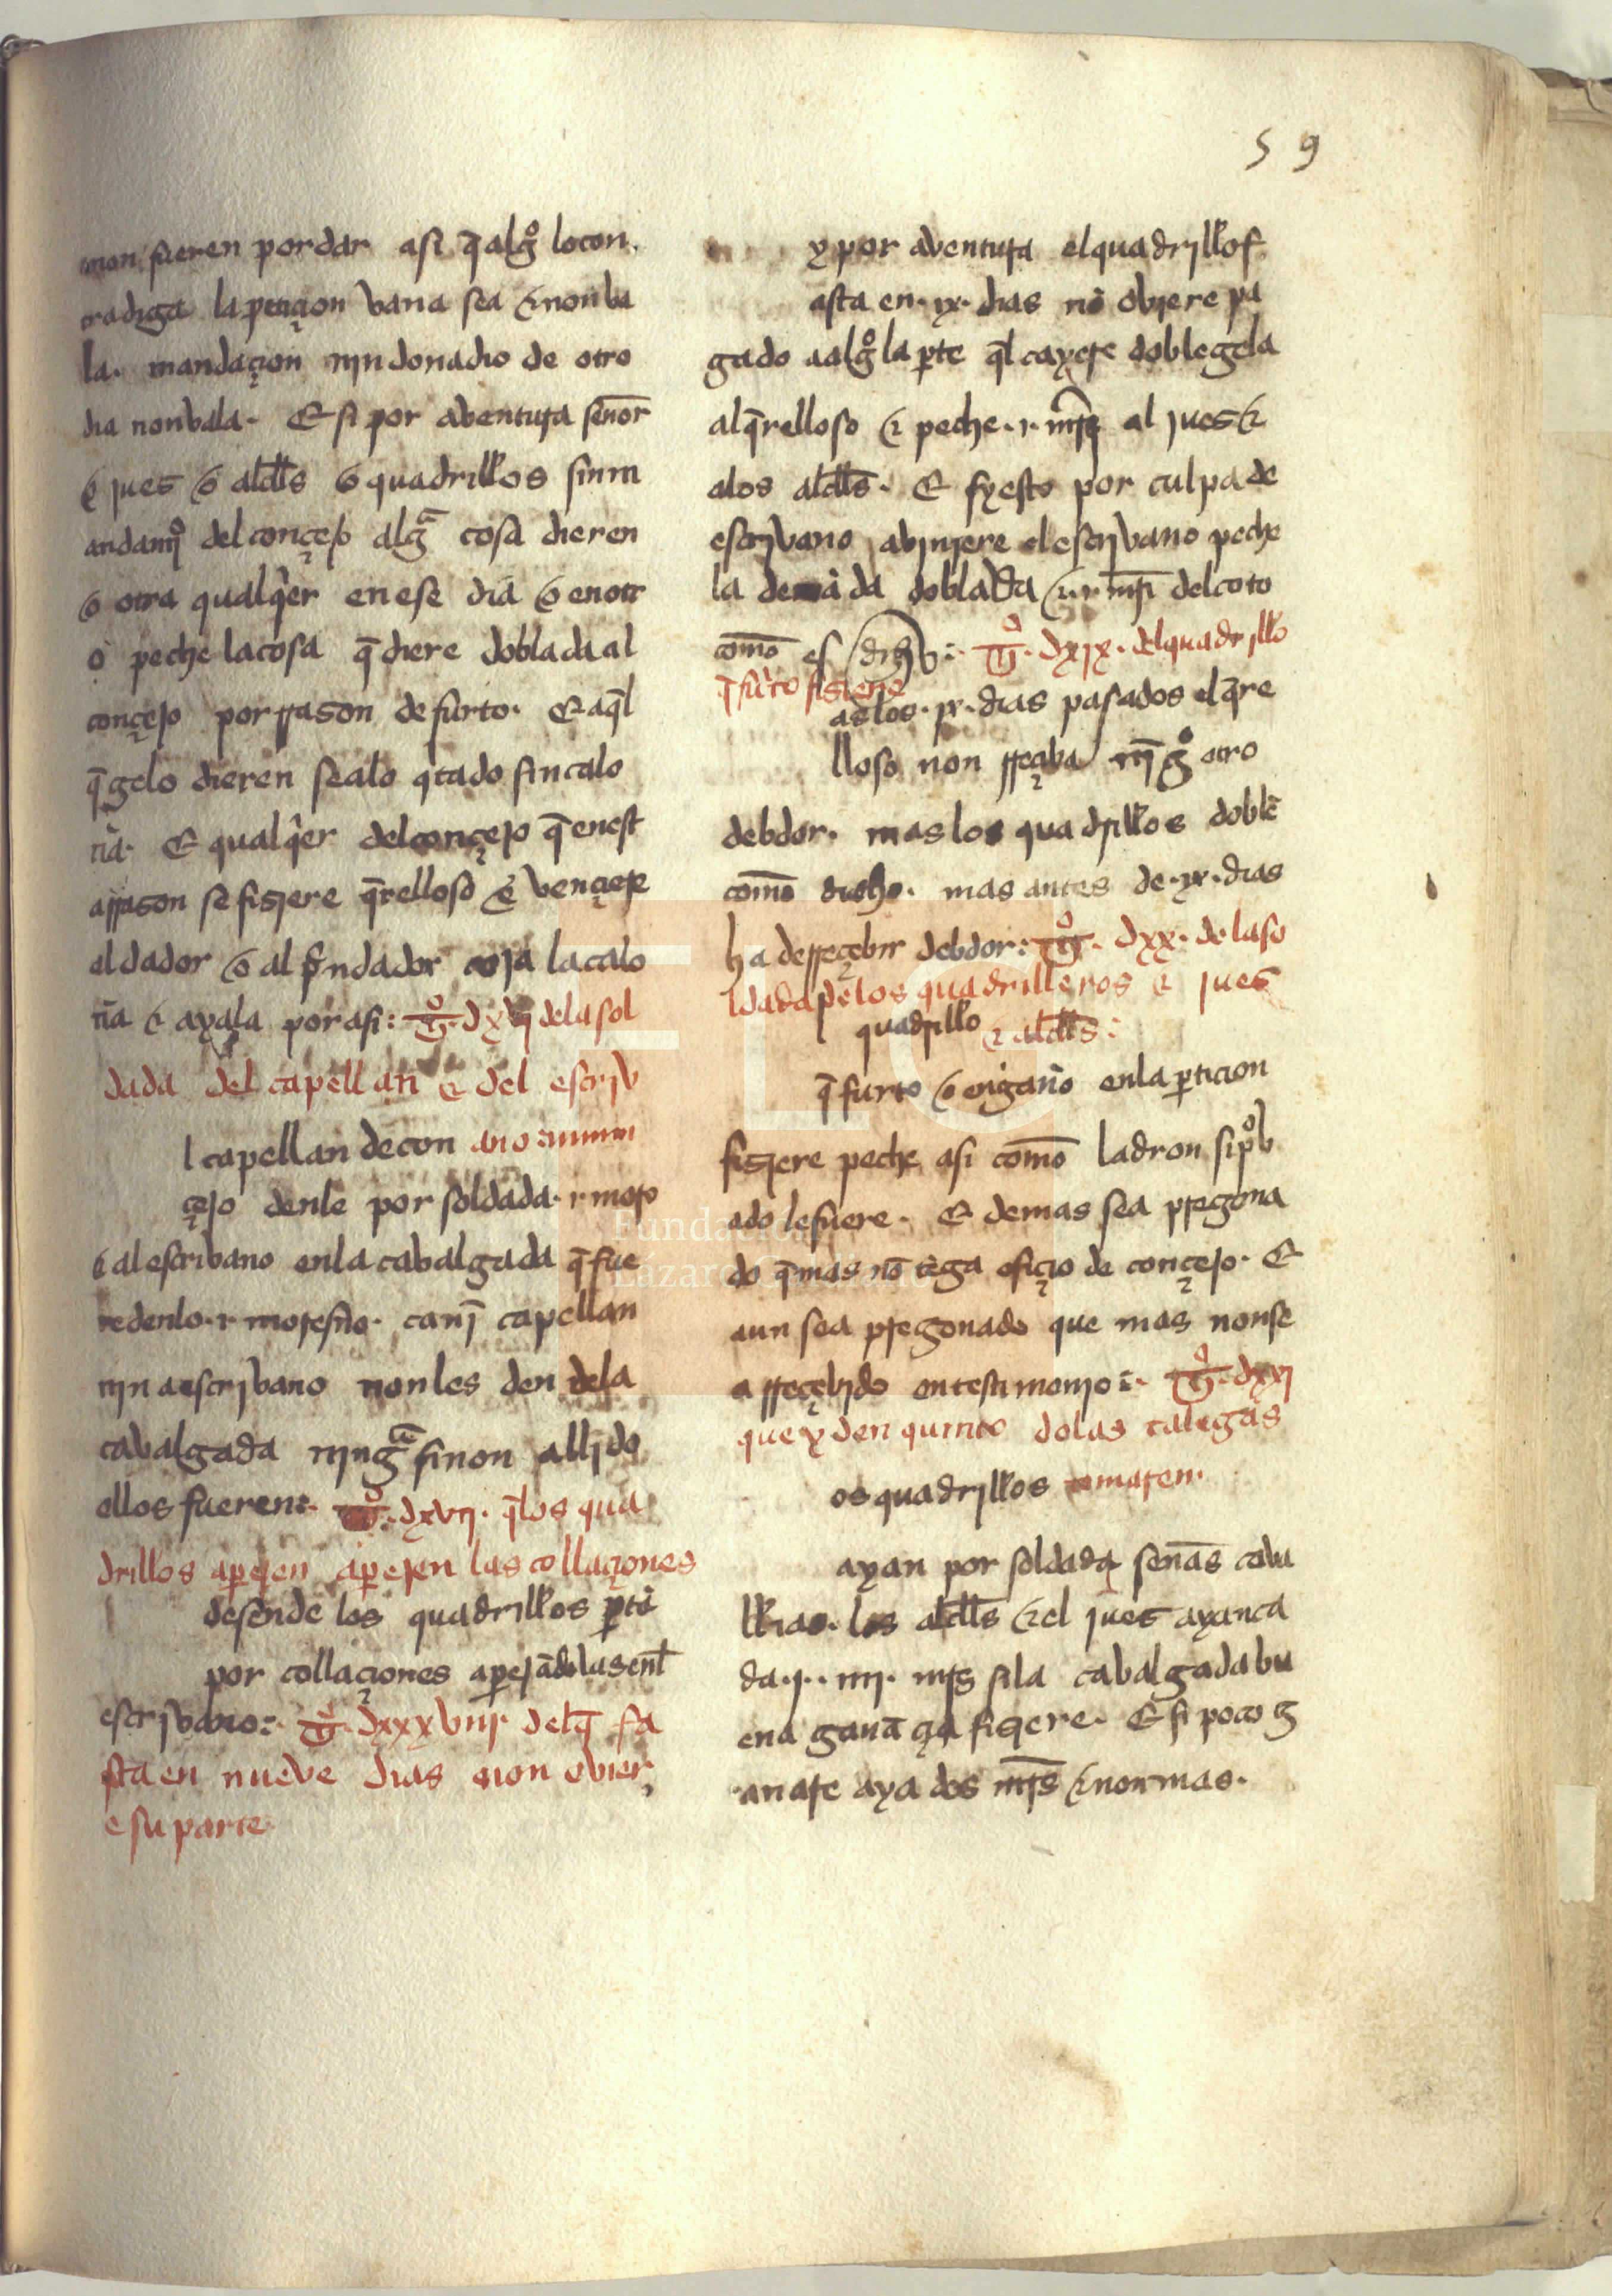 59
mon fueren por dar asi q̄ algo locon
tradiga la petiçion vana sea & non va
la. mandaçion njn donadio de otro
dia non vala. Et si por aventura señor
o jues o alcłłs o quadrillos sin m
andamjo del conçejo alga cosa dieren
o otra qualqer en ese dia o en otr
o peche la cosa q̄ diere doblada al
conçejo por rrason de furto. Et aq̄l
q̄ gelo dieren sealo qtado sin calo
ña. Et qualqer del conçejo q̄ en est
a rrason se fisiere q̄relloso & vençiere
al dador o al prendador coja la calo
ña & ayala por asi: tgo. dxvj de la sol
dada del capellan & del escriv
l capellan de con ano
çejo denle por soldada. 1. moro
& al escribano en la cabalgada q̄ fue
re denlo. 1. moresno. canj capellan
njn a escrivano non les den de la
cabalgada njnga sinon alli do
ellos fueren: tgo. dxvij. q̄ los qua
drillos aperejen aperejen las collaçiones
desende los quadrillos p̱tā
por collaçiones aperejādolas enł
escrivano: tgo. dxxxviij. del q̄ fa
sta en nueve dias non ovier
e su parte
y por aventura el quadrillo f
asta en. ix. dias nō obiere pa
gado a algo la p̱te q̄l cayere doblegela
al q̄relloso & peche. 1. mr̄i al jues &
a los alcłłs. Et sy esto por culpa de
escrivano abiniere el escrivano peche
la demāda doblada & 1 mr̄i del coto
como es dicho: tgo. dxix. del quadrillo
q̄ furto fisiere
as los. ix. dias pasados el q̄re
lloso non rreçaba njgo otro
debdor. mas los quadrillos doblē
como dicho. mas antes de. ix. dias
ha de rreçebir debdor: tgo. dxx. de la so
ldada p̱ los quadrilleros & jues
quadrillo & alcłłs:
q̄ furto o engaño en la p̱ticion
fisiere peche asi como ladron si prob
ado le fuere. Et demas sea pregona
do q̄ mas nō tēga ofiçio de conçejo. Et
aun sea pregonado que mas non se
a rreçebido en testimonio: tgo. dxxj
que y den quinto do las talegas
os quadrillos tomaren.
ayan por soldada señas caba
lłrias. los alcłłs & el jues ayan ca
da. j.. iiij. mr̄s si la cabalgada bu
ena ganāçia fisiere. Et si poco g
anare aya dos mr̄s & non mas.